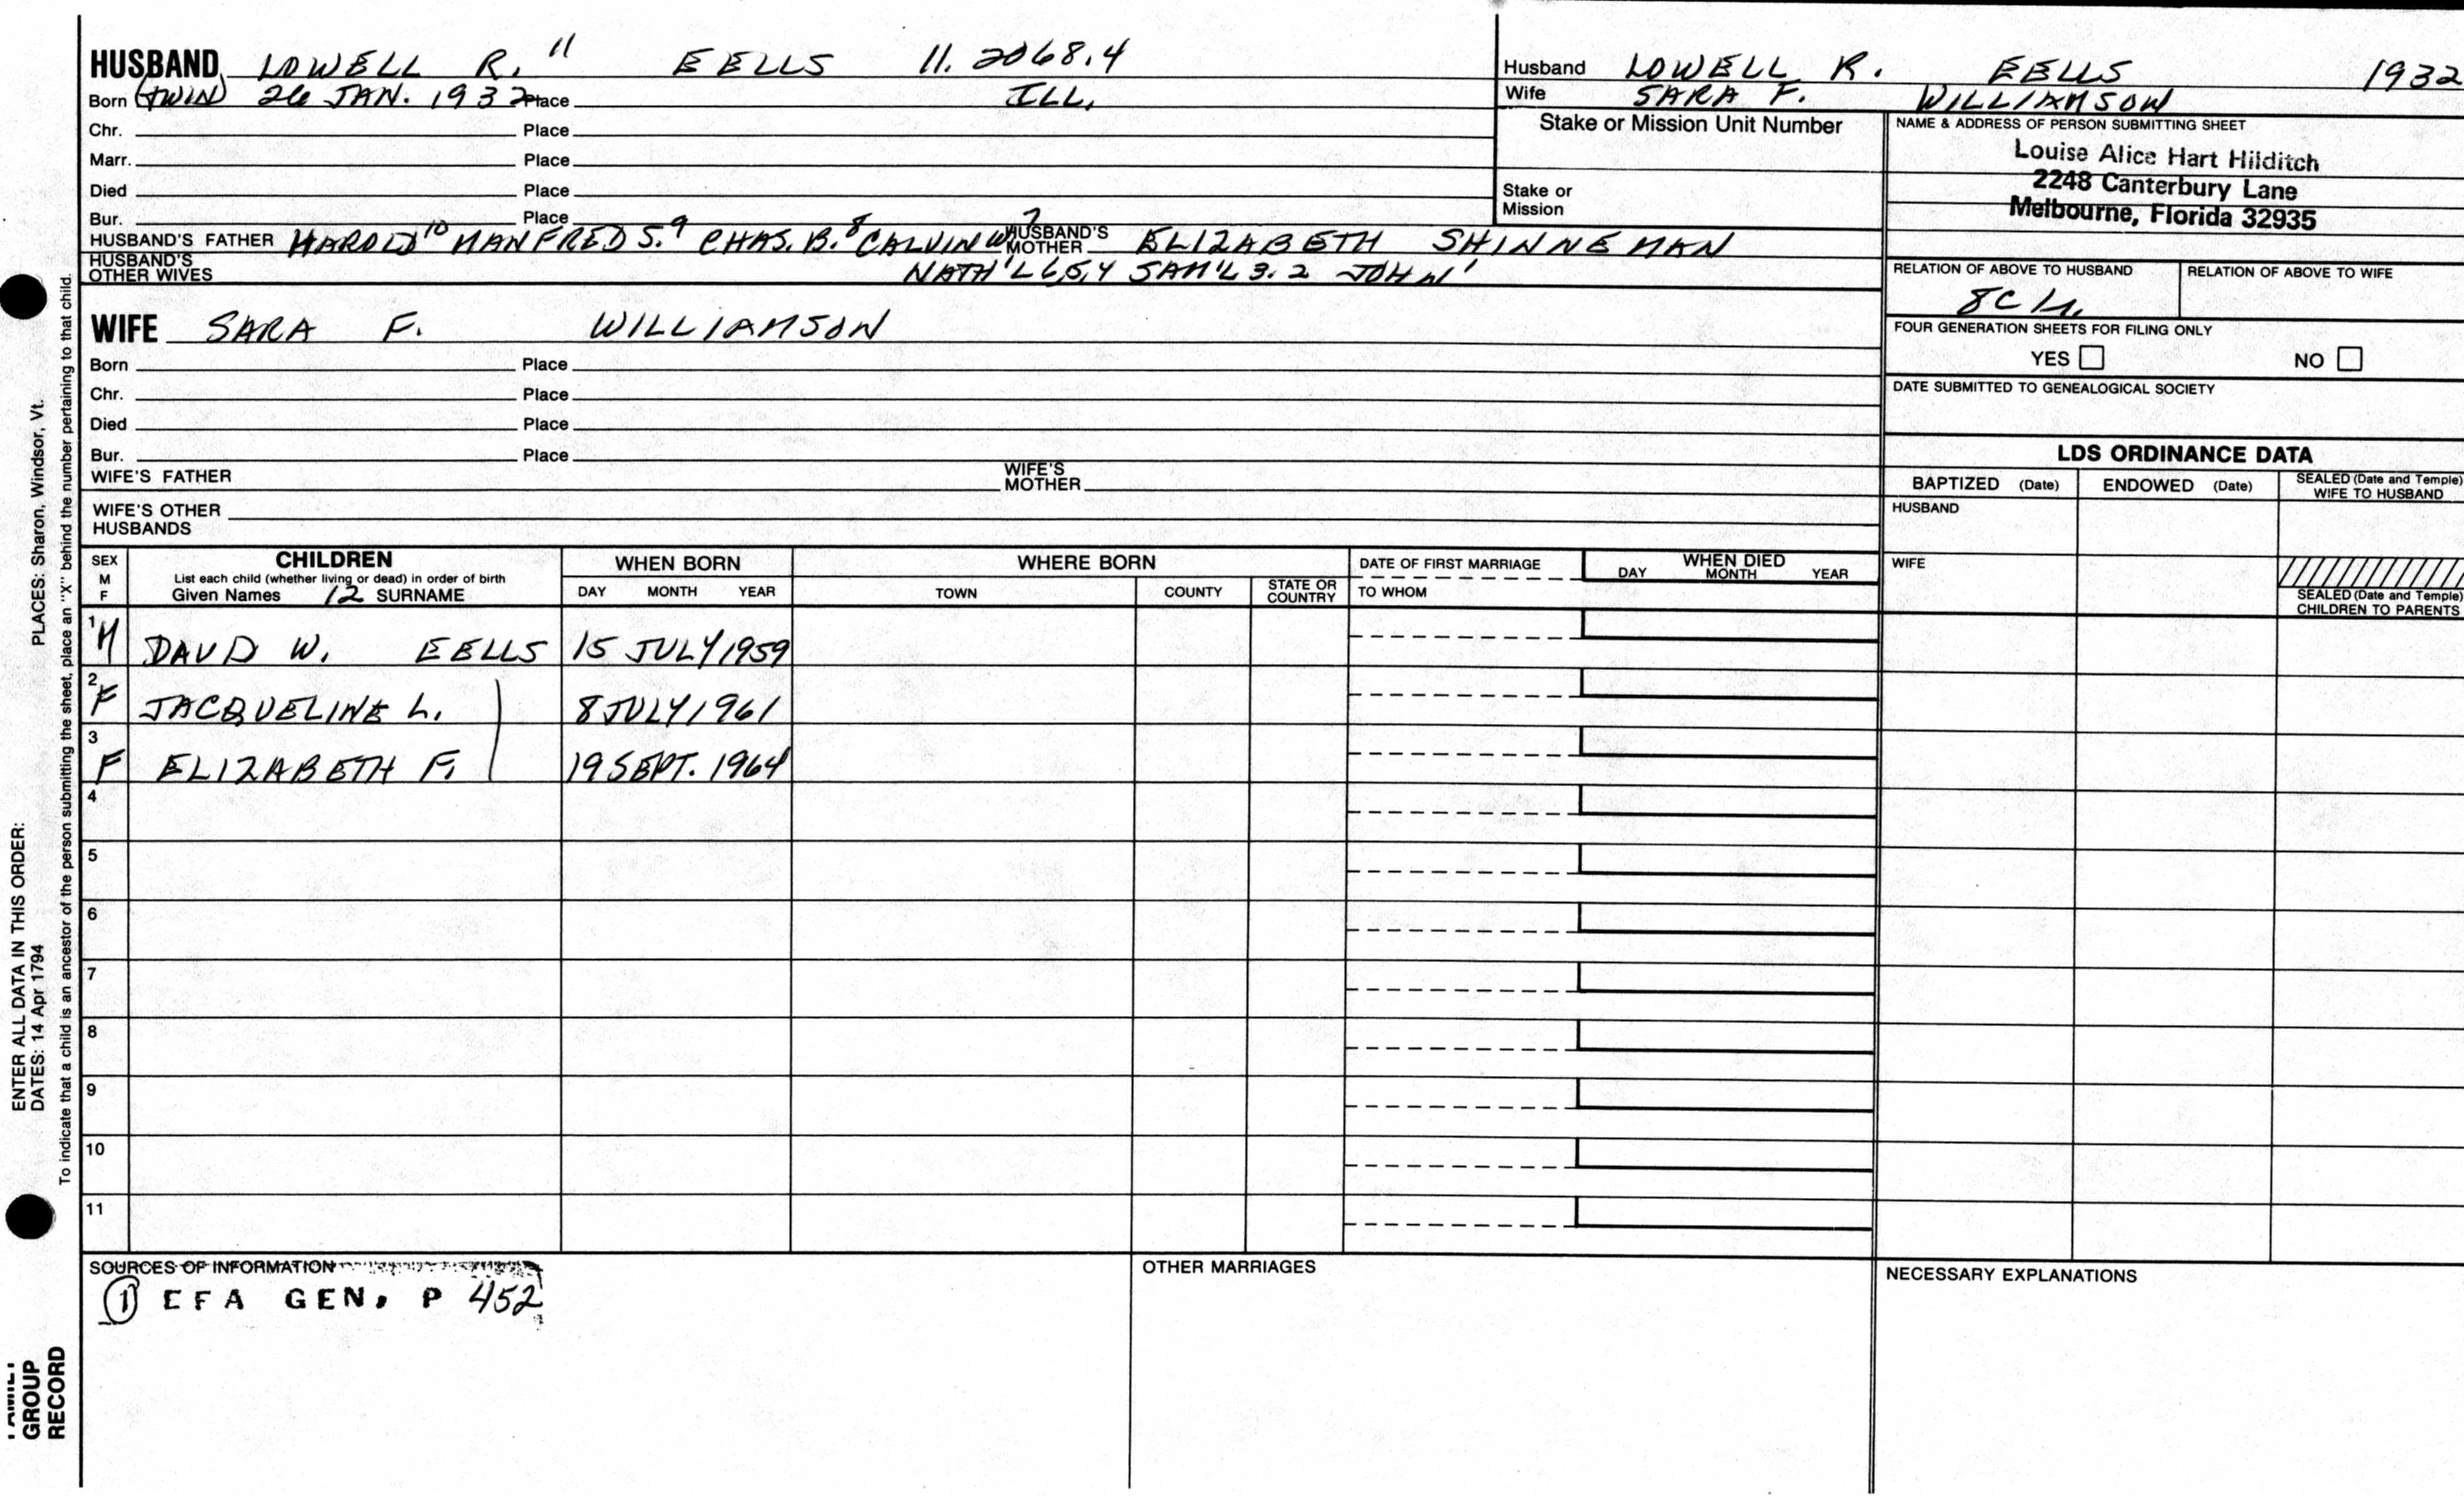 HUSBAND LOWELL R. 11 EELLS 11. 2068.4
Born (TWIN) 26 JAN. 1932 Place ILL.
Chr. Place
Marr. Place
Died Place
Bur. Place
HUSBAND'S FATHER HAROLD 10 MANFRED S. 9 CHAS. B. 8 CALVIN W 7 HUSBAND'S MOTHER ELIZABETH SHINNEMAN
HUSBAND'S OTHER WIVES NATH'L 6,5,4 SAM'L 3. 2 JOHN 1
Husband LOWELL R. EELLS 1932
Wife SARA F. WILLIAMSON
Stake or Mission Unit Number
Stake or
Mission
NAME & ADDRESS OF PERSON SUBMITTING SHEET
Louise Alice Hart Hilditch
2248 Canterbury Lane
Melbourne, Florida 32935
RELATION OF ABOVE TO HUSBAND RELATION OF ABOVE TO WIFE
8C
FOUR GENERATION SHEETS FOR FILING ONLY
YES NO
DATE SUBMITTED TO GENEALOGICAL SOCIETY
WIFE SARA F. WILLIAMSON
Born Place
Chr. Place
Died Place
Bur. Place
WIFE'S FATHER WIFE'S MOTHER
WIFE'S OTHER
HUSBANDS
LDS ORDINANCE DATA
BAPTIZED (Date) ENDOWED (Date) SEALED (Date and Temple) WIFE TO HUSBAND
HUSBAND
WIFE
SEALED (Date and Temple)
CHILDREN TO PARENTS
SEX
M
F
CHILDREN
List each child (whether living or dead) in order of birth
Given Names 12 SURNAME
WHEN BORN
DAY MONTH YEAR
WHERE BORN
TOWN COUNTY STATE OR COUNTRY
DATE OF FIRST MARRIAGE
TO WHOM
WHEN DIED
DAY MONTH YEAR
1 M DAVID W. EELLS 15 JULY 1959
2 F JACQUELINE L. 8 JULY 1961
3 F ELIZABETH F. 19 SEPT. 1964
4
5
6
7
8
9
10
11
SOURCES OF INFORMATION
1 EFA GEN. P 452
OTHER MARRIAGES
NECESSARY EXPLANATIONS
ENTER ALL DATA IN THIS ORDER:
DATES: 14 Apr 1794 PLACES: Sharon, Windsor, Vt.
To indicate that a child is an ancestor of the person submitting the sheet, place an "X" behind the number pertaining to that child.
FAMILY
GROUP
RECORD